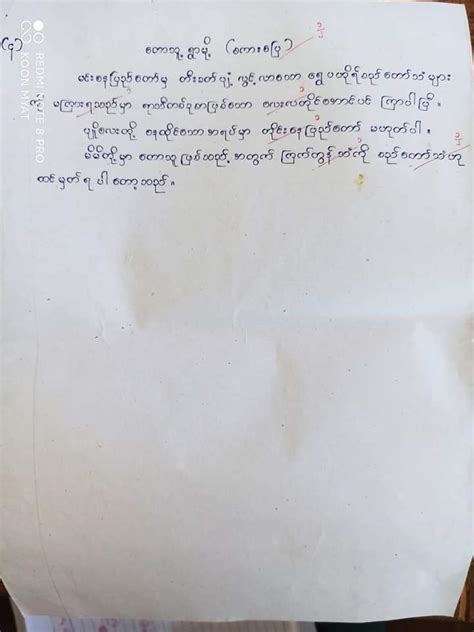 (၄) တောသူ့ ရွာမို့ (စကားပြေ)
မင်းနေပြည်တော်မှ တီးခတ်၍ လွင့်လာသော ရွှေပဟိုရ်စည်တော်သံများ
မကြားရသည်မှာ ရာသီတစ်ခုတာဖြစ်သော လေးလတိုင်အောင်ပင် ကြာပါပြီ။
ပုျိုလေးတို့ နေထိုင်သော အရပ်မှာ ထိုင်းနေပြည်တော် မဟုတ်ပါ။
မိမိတို့မှာ တောသူဖြစ်သည့် အတွက် ကြက်တွန်သံကို စည်တော်သံဟု
ထင်မှတ် ရ ပါ တော့သည်။
REDMI NOTE 8 PRO
KOON MYAT